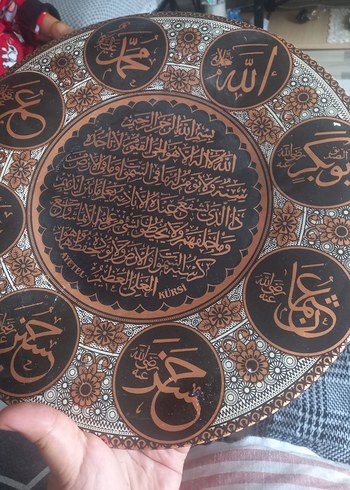 الله
محمد
عمر
ابوبكر
بسم الله الرحمن الرحيم
الله لا اله الا هو الحي القيوم لا تاخذه
سنة ولا نوم له ما في السموات وما في الارض من
ذا الذي يشفع عنده الا باذنه يعلم ما بين ايديهم
وما خلفهم ولا يحيطون بشيء من علمه الا بما شاء وسع
كرسيه السموات والارض ولا يؤده حفظهما وهو
العلي العظيم
AYETEL KÜRSİ
عثمان
حسن
حسين